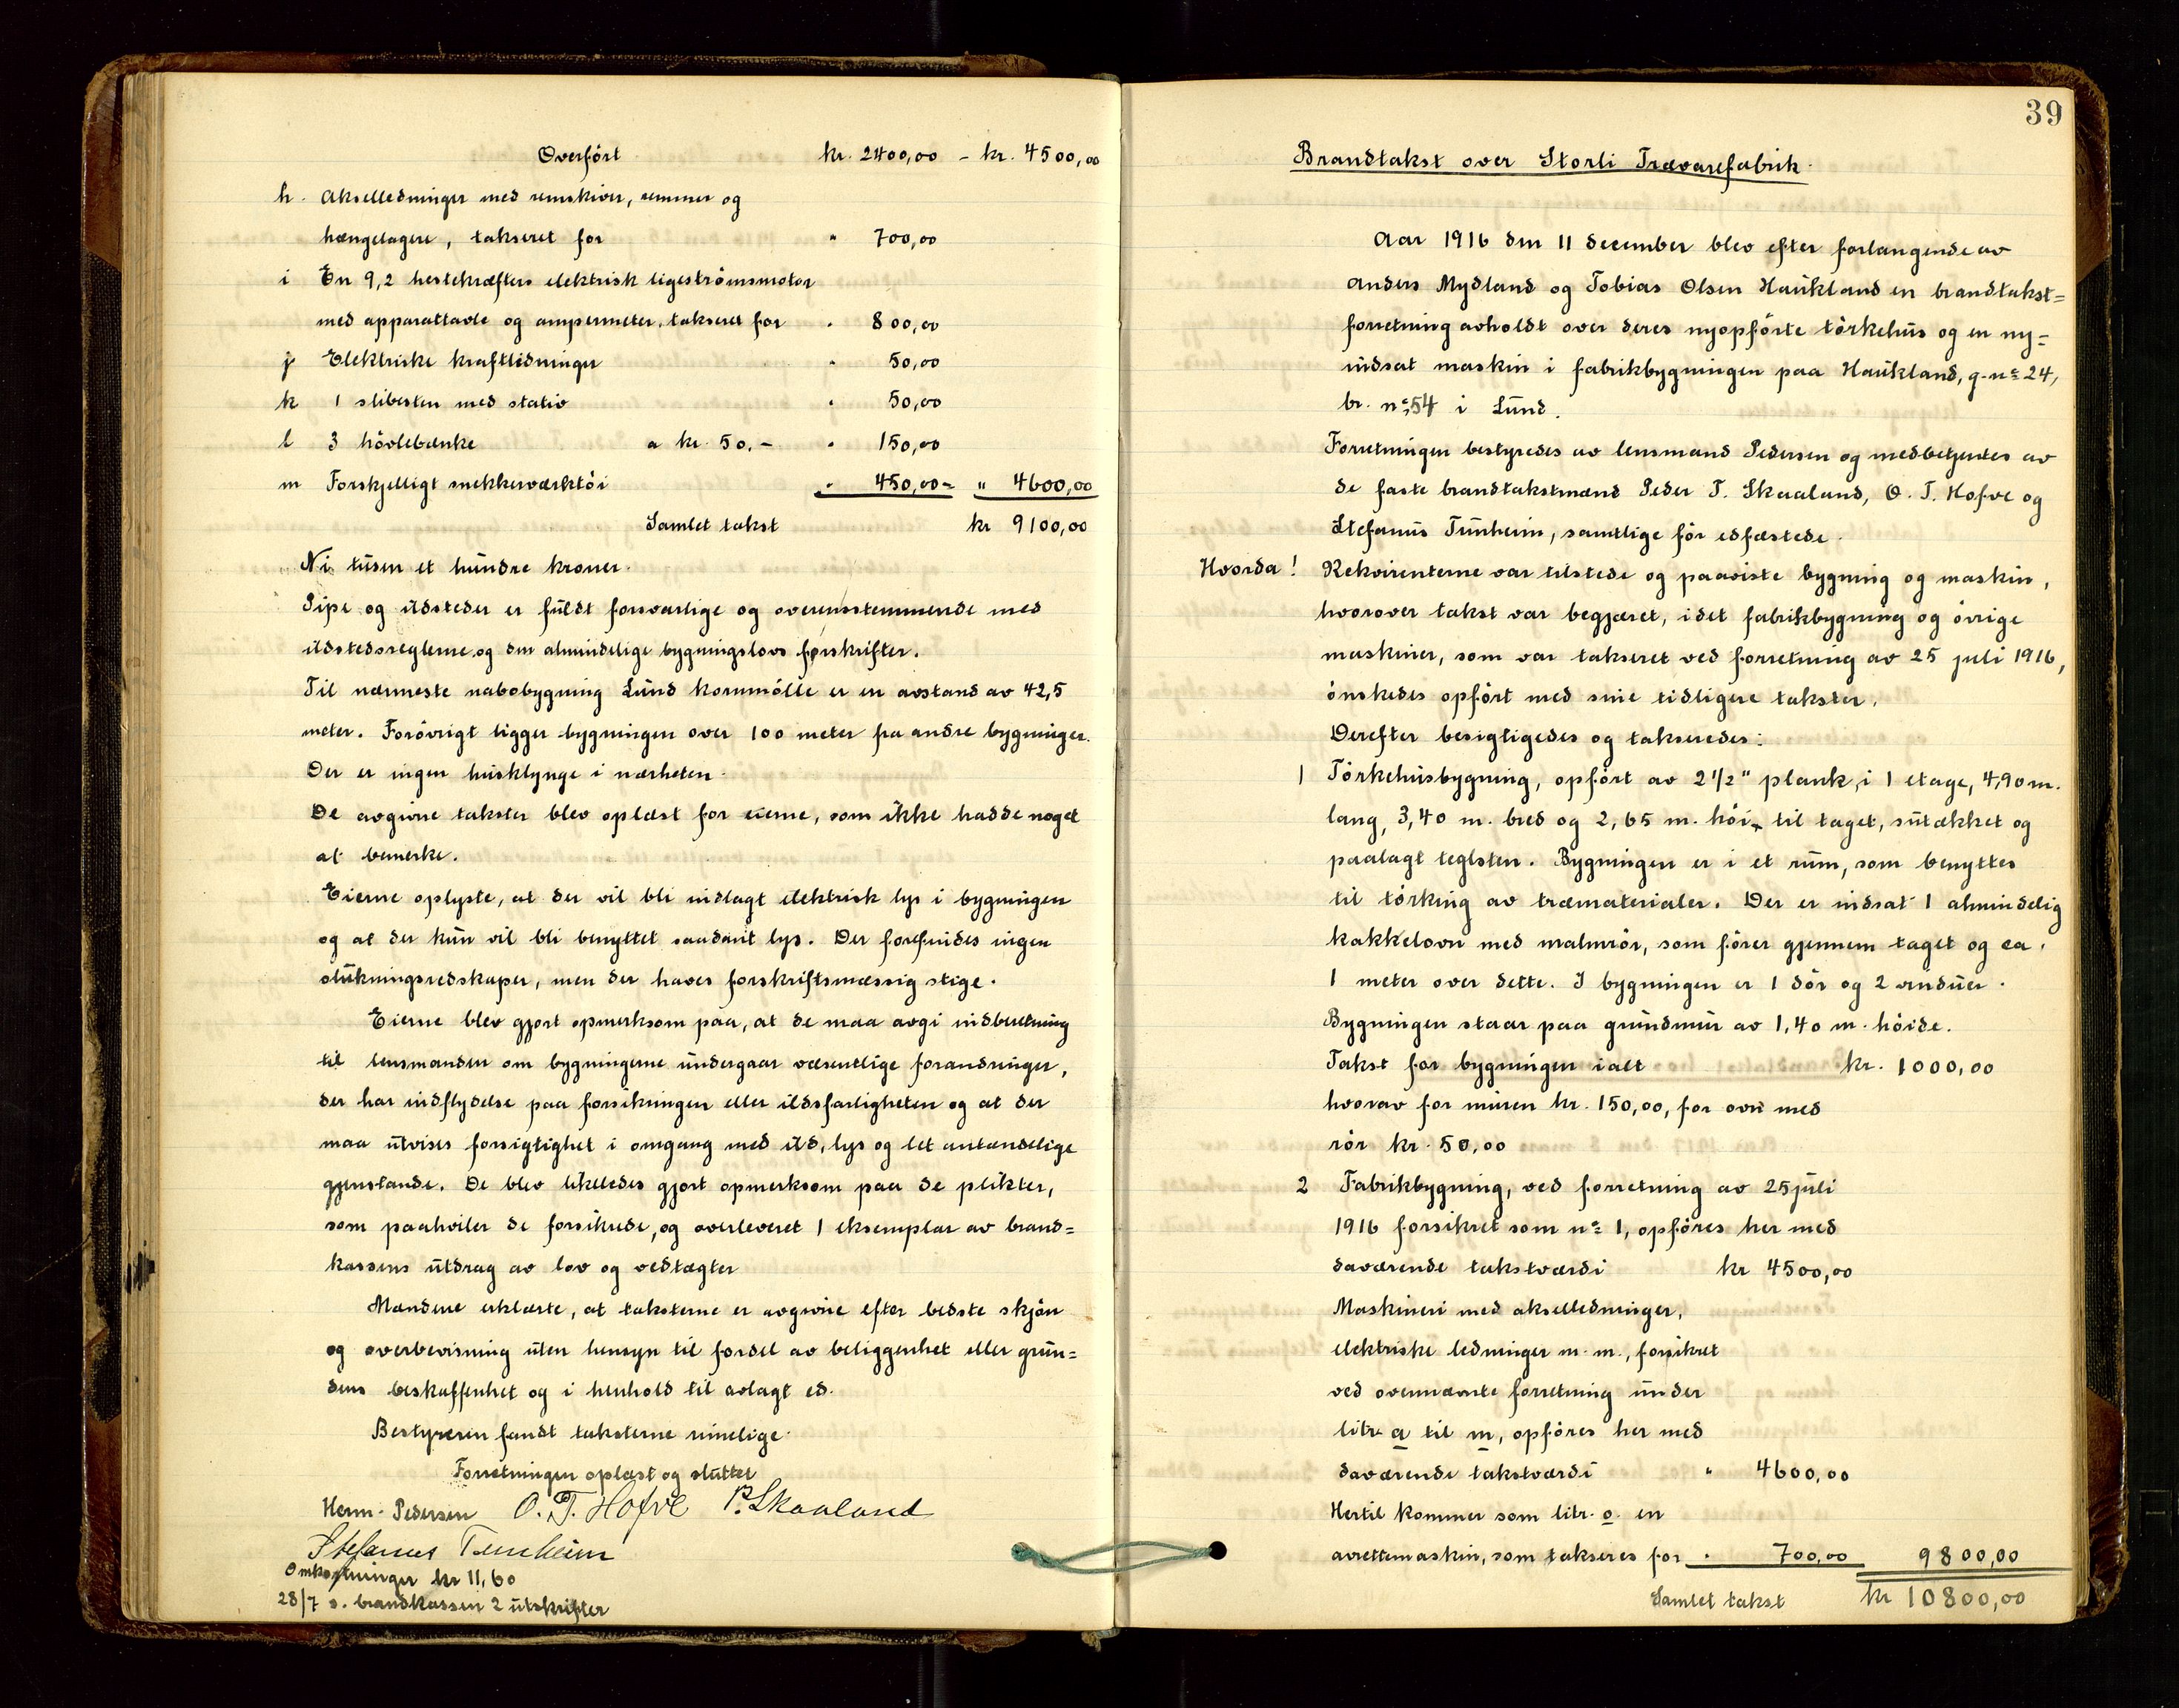 Overført kr. 2400,00 - kr. 4500,00
h. Akselledninger med remskiver, remmer og
hængelagere, takseret for " 700,00
i En 9,2 hestekræfters elektrisk ligestrømsmotor
med apparattavle og ampermeter, takseret for " 800,00
j Elektriske kraftledninger " 50,00
k 1 slibesten med stativ " 50,00
l 3 høvlebænke a kr. 50.- " 150,00
m Forskjelligt snekkerværktøi " 450,00 = " 4600,00
Samlet takst kr 9100,00
Ni tusen et hundre kroner.
Pipe og ildsteder er fuldt forsvarlige og overensstemmende med
ildstedsreglerne og den almindelige bygningslovs forskrifter.
Til nærmeste nabobygning Lund kornmølle er en avstand av 42,5
meter. Forøvrigt ligger bygningen over 100 meter fra andre bygninger.
Der er ingen husklynge i nærheten.
De avgivne takster blev oplæst for eierne, som ikke hadde noget
at bemerke.
Eierne oplyste, at der vil bli indlagt elektrisk lys i bygningen
og at der kun vil bli benyttet saadant lys. Der forefindes ingen
slukningsredskaper, men der haves forskriftsmæssig stige.
Eierne blev gjort opmerksom paa, at de maa avgi indberetning
til lensmanden om bygningerne undergaar væsentlige forandringer,
der har indflydelse paa forsikringen eller ildsfarligheten og at der
maa utvises forsigtighet i omgang med ild, lys og let antændelige
gjenstande. De blev likeledes gjort opmerksom paa de plikter,
som paahviler de forsikrede, og overleveret 1 eksemplar av brand=
kassens utdrag av lov og vedtægter
Mændene erklærte, at taksterne er avgivne efter bedste skjøn
og overbevisning uten hensyn til fordel av beliggenhet eller grun=
dens beskaffenhet og i henhold til avlagt ed.
Bestyreren fandt taksterne rimelige.
Forretningen oplæst og sluttet
Herm. Pedersen O. T. Hofve P. Skaaland
Stefanus Tunheim
Omkostninger kr 11,60
28/7 s. brandkassen 2 utskrifter
39
Brandtakst over Storli Trævarefabrik.
Aar 1916 den 11 december blev efter forlangende av
Anders Mydland og Tobias Olsen Haukland en brandtakst=
forretning avholdt over deres nyopførte tørkehus og en ny=
indsat maskin i fabrikbygningen paa Haukland, g.-nº 24,
br. nº 54 i Lund.
Forretningen bestyredes av lensmand Pedersen og medbetjentes av
de faste brandtakstmænd Peder T. Skaaland, O. T. Hofve og
Stefanus Tunheim, samtlige før edfæstede.
Hvorda! Rekvirenterne var tilstede og paaviste bygning og maskin,
hvorover takst var begjæret, idet fabrikbygning og øvrige
maskiner, som var takseret ved forretning av 25 juli 1916,
ønskedes opført med sine tidligere takster.
Derefter besigtigedes og takseredes:
1 Tørkehusbygning, opført av 2 1/2" plank, i 1 etage, 4,90 m.
lang, 3,40 m. bred og 2,65 m. høi, til taget, sutækket og
paalagt teglsten. Bygningen er i et rum, som benyttes
til tørking av træmaterialer. Der er indsat 1 almindelig
kakkelovn med malmrør, som fører gjennem taget og ca.
1 meter over dette. I bygningen er 1 dør og 2 vinduer.
Bygningen staar paa grundmur av 1,40 m. høide.
Takst for bygningen ialt kr. 1000,00
hvorav for muren kr. 150,00, for ovn med
rør kr. 50,00
2 Fabrikbygning, ved forretning av 25 juli
1916 forsikret som nº 1, opføres her med
daværende takstværdi kr 4500,00
Maskineri med akselledninger,
elektriske ledninger m. m., forsikret
ved ovennævnte forretning under
litr a til m, opføres her med
daværende takstværdi " 4600,00
Hertil kommer som litr. o en
avrettemaskin, som takseres for " 700,00 9800,00
Samlet takst kr 10800,00